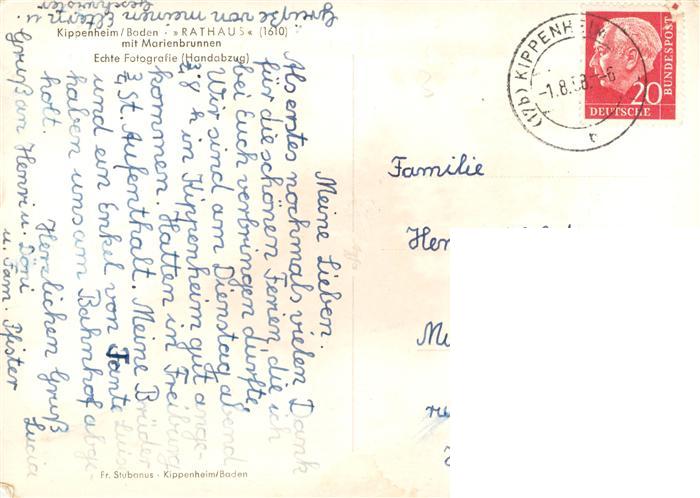 Kippenheim/Baden · »RATHAUS« (1610)
mit Marienbrunnen
Echte Fotografie (Handabzug)
Meine Lieben.
Als erstes nochmals vielen Dank
für die schönen Ferien, die ich
bei Euch verbringen durfte.
Wir sind am Dienstag abend
8 h in Kippenheim gut ange-
kommen. Hatten in Freiburg
St. Aufenthalt. Meine Brüder
und ein Enkel von Tante Luis
haben uns am Bahnhof abge-
holt.
Herzlichen Gruß
Lucia
Gruß an Henri u. Döni
u. Fam. Pfister
Grüße von meinen Eltern u.
Geschwister
(17b) KIPPENHEIM
-1.8.58.-
b
DEUTSCHE
BUNDESPOST
20
Familie
Fr. Stubanus · Kippenheim/Baden